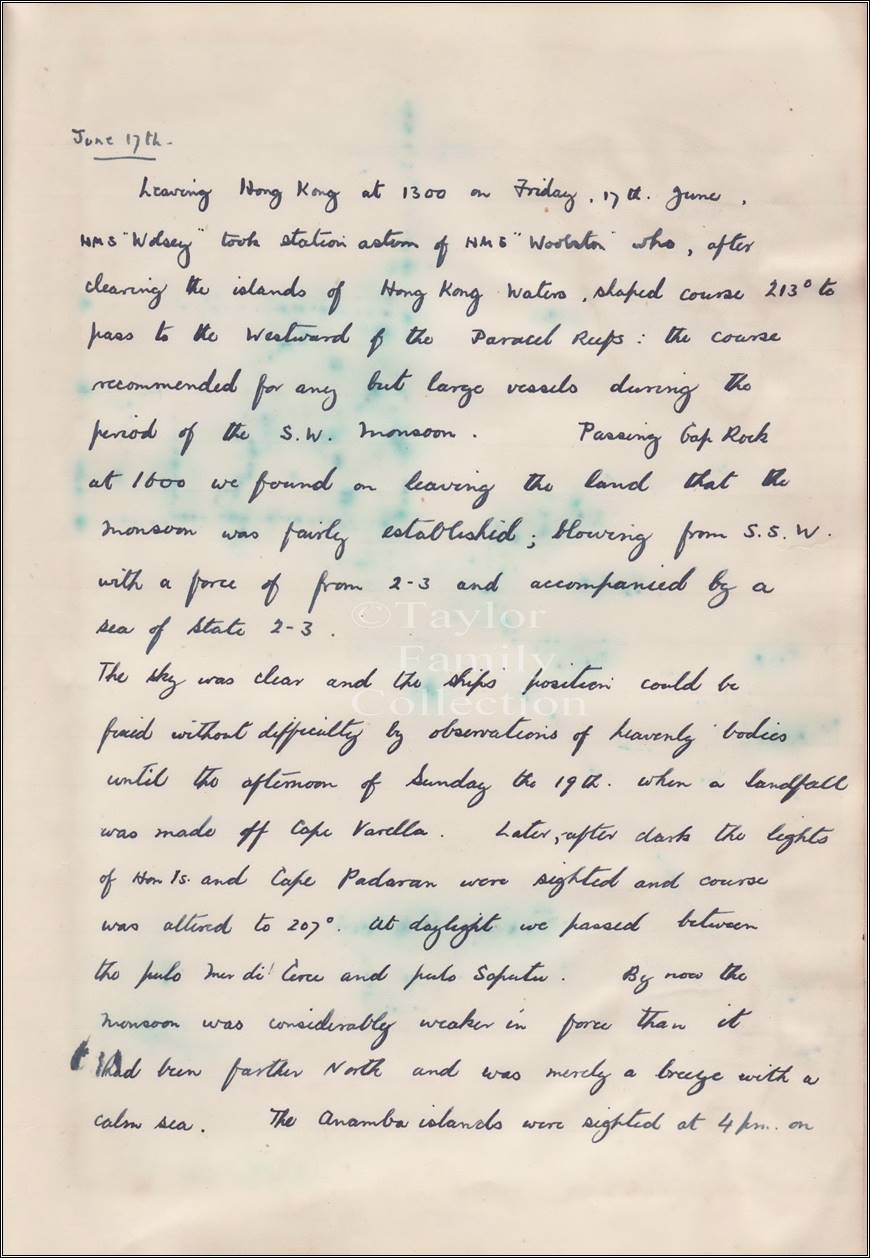 June 17th.
Leaving Hong Kong at 1300 on Friday, 17th. June,
HMS "Wolsey" took station astern of HMS "Woolston" who, after
clearing the islands of Hong Kong Waters, shaped course 213° to
pass to the Westward of the Paracel Reefs: the course
recommended for any but large vessels during the
period of the S.W. Monsoon. Passing Gap Rock
at 1600 we found on leaving the land that the
monsoon was fairly established; blowing from S.S.W.
with a force of from 2-3 and accompanied by a
sea of state 2-3.
©Taylor
Family
Collection
The sky was clear and the ships' position could be
fixed without difficulty by observations of heavenly bodies
until the afternoon of Sunday the 19th. when a landfall
was made off Cape Varella. Later, after dark the lights
of Hon Is. and Cape Padaran were sighted and course
was altered to 207°. At daylight we passed between
the pulo and pulo Sapatu. By now the
monsoon was considerably weaker in force than it
had been farther North and was merely a breeze with a
calm sea. The Anamba islands were sighted at 4 pm. on